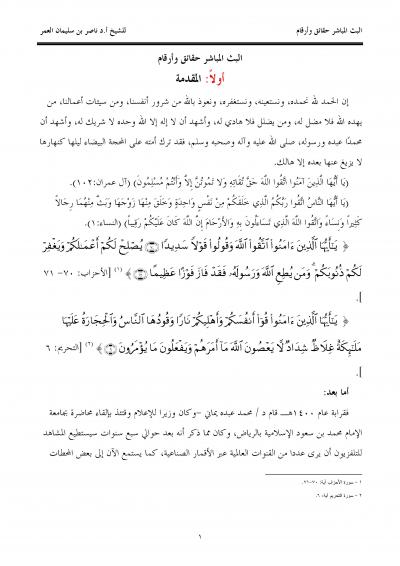 البث المباشر حقائق وأرقام
للشيخ أ.د ناصر بن سليمان العمر
البث المباشر حقائق وأرقام
أولاً: المقدمة
إن الحمد لله نحمده، ونستعينه، ونستغفره، ونعوذ بالله من شرور أنفسنا، ومن سيئات أعمالنا، من
يهده الله فلا مضل له، ومن يضلل فلا هادي له، وأشهد أن لا إله إلا الله وحده لا شريك له، وأشهد أن
محمدًا عبده ورسوله، صلى الله عليه وآله وصحبه وسلم، فقد ترك أمته على المحجة البيضاء ليلها كنهارها
لا يزيغ عنها بعده إلا هالك.
(يَا أَيُّهَا الَّذِينَ آمَنُوا اتَّقُوا اللَّهَ حَقَّ تُقَاتِهِ وَلا تَمُوتُنَّ إِلَّا وَأَنْتُمْ مُسْلِمُونَ) (آل عمران:١٠٢).
(يَا أَيُّهَا النَّاسُ اتَّقُوا رَبَّكُمُ الَّذِي خَلَقَكُمْ مِنْ نَفْسٍ وَاحِدَةٍ وَخَلَقَ مِنْهَا زَوْجَهَا وَبَثَّ مِنْهُمَا رِجَالاً
كَثِيراً وَنِسَاءً وَاتَّقُوا اللَّهَ الَّذِي تَسَاءَلُونَ بِهِ وَالأَرْحَامَ إِنَّ اللَّهَ كَانَ عَلَيْكُمْ رَقِيباً) (النساء:١).
﴿ يَـٰٓأَيُّهَا ٱلَّذِينَ ءَامَنُوا۟ ٱتَّقُوا۟ ٱللَّهَ وَقُولُوا۟ قَوْلًا سَدِيدًا ۝ يُصْلِحْ لَكُمْ أَعْمَـٰلَكُمْ وَيَغْفِرْ
لَكُمْ ذُنُوبَكُمْ ۗ وَمَن يُطِعِ ٱللَّهَ وَرَسُولَهُۥ فَقَدْ فَازَ فَوْزًا عَظِيمًا ۝ ﴾ (١) [الأحزاب: ٧٠- ٧١
].
﴿ يَـٰٓأَيُّهَا ٱلَّذِينَ ءَامَنُوا۟ قُوٓا۟ أَنفُسَكُمْ وَأَهْلِيكُمْ نَارًا وَقُودُهَا ٱلنَّاسُ وَٱلْحِجَارَةُ عَلَيْهَا
مَلَـٰٓئِكَةٌ غِلَاظٌ شِدَادٌ لَّا يَعْصُونَ ٱللَّهَ مَآ أَمَرَهُمْ وَيَفْعَلُونَ مَا يُؤْمَرُونَ ۝ ﴾ (٢) [التحريم: ٦
].
أما بعد:
فقرابة عام ١٤٠٠هـــ قام د / محمد عبده يماني -وكان وزيرا للإعلام وقتئذ بإلقاء محاضرة بجامعة
الإمام محمد بن سعود الإسلامية بالرياض، وكان مما ذكر أنه بعد حوالي سبع سنوات سيستطيع المشاهد
للتلفزيون أن يرى عددا من القنوات العالمية عبر الأقمار الصناعية، كما يستمع الآن إلى بعض المحطات
١ - سورة الأحزاب آية: ٧٠-٧١.
٢ - سورة التحريم آية: ٦.
١